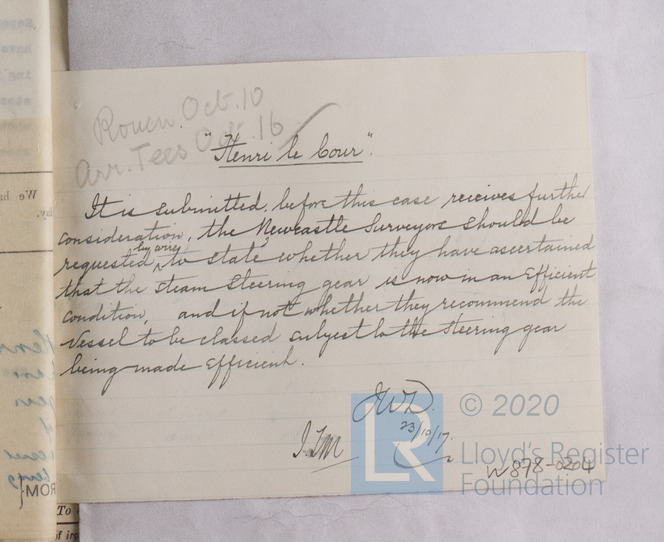 Rouen. Oct. 10
Arr. Tees Oct. 16
"Henri le Cour".
It is submitted, before this case receives further
consideration, the Newcastle Surveyors should be
requested, by wire, to state whether they have ascertained
that the Steam Steering gear is now in an Efficient
condition, and if not whether they recommend the
Vessel to be classed subject to the Steering gear
being made Efficient.
JWD.
23/10/17.
W898-0204
© 2020
LR
Lloyd's Register
Foundation
We ha
MOR
To
if iro